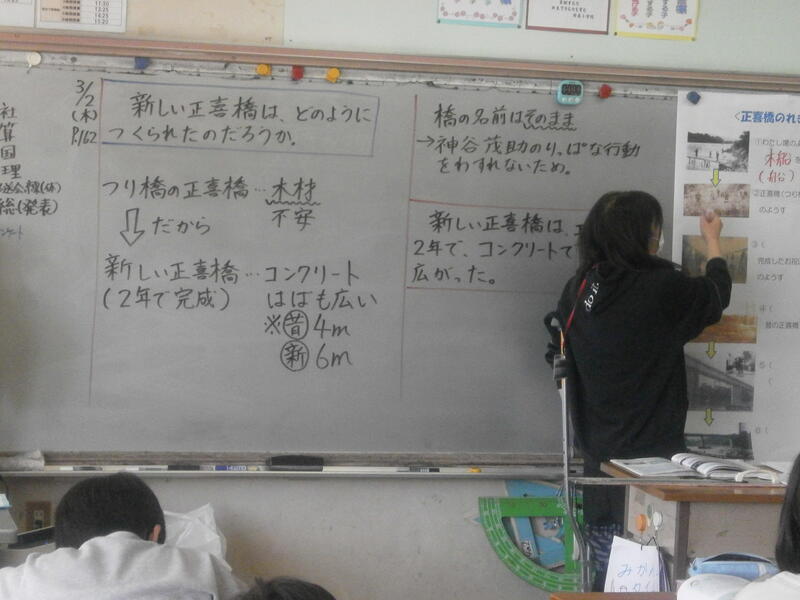 社
算
国
理
総(発表)
3/2
(木)
P.162
新しい正喜橋は、どのように
つくられたのだろうか。
つり橋の正喜橋…木材
不安
だから
新しい正喜橋…コンクリート
(2年で完成)
はばも広い
※昔 4m
新 6m
橋の名前はそのまま
→神谷茂助のりっぱな行動
をわすれないため。
新しい正喜橋は、
2年で、コンクリートで
広がった。
〈正喜橋のれき
①わたし場の
木船を
(船)
②正喜橋(つり
のようす
③(
完成したお祝
のようす
④(
昔の正喜橋
⑤(
⑥(
みかん